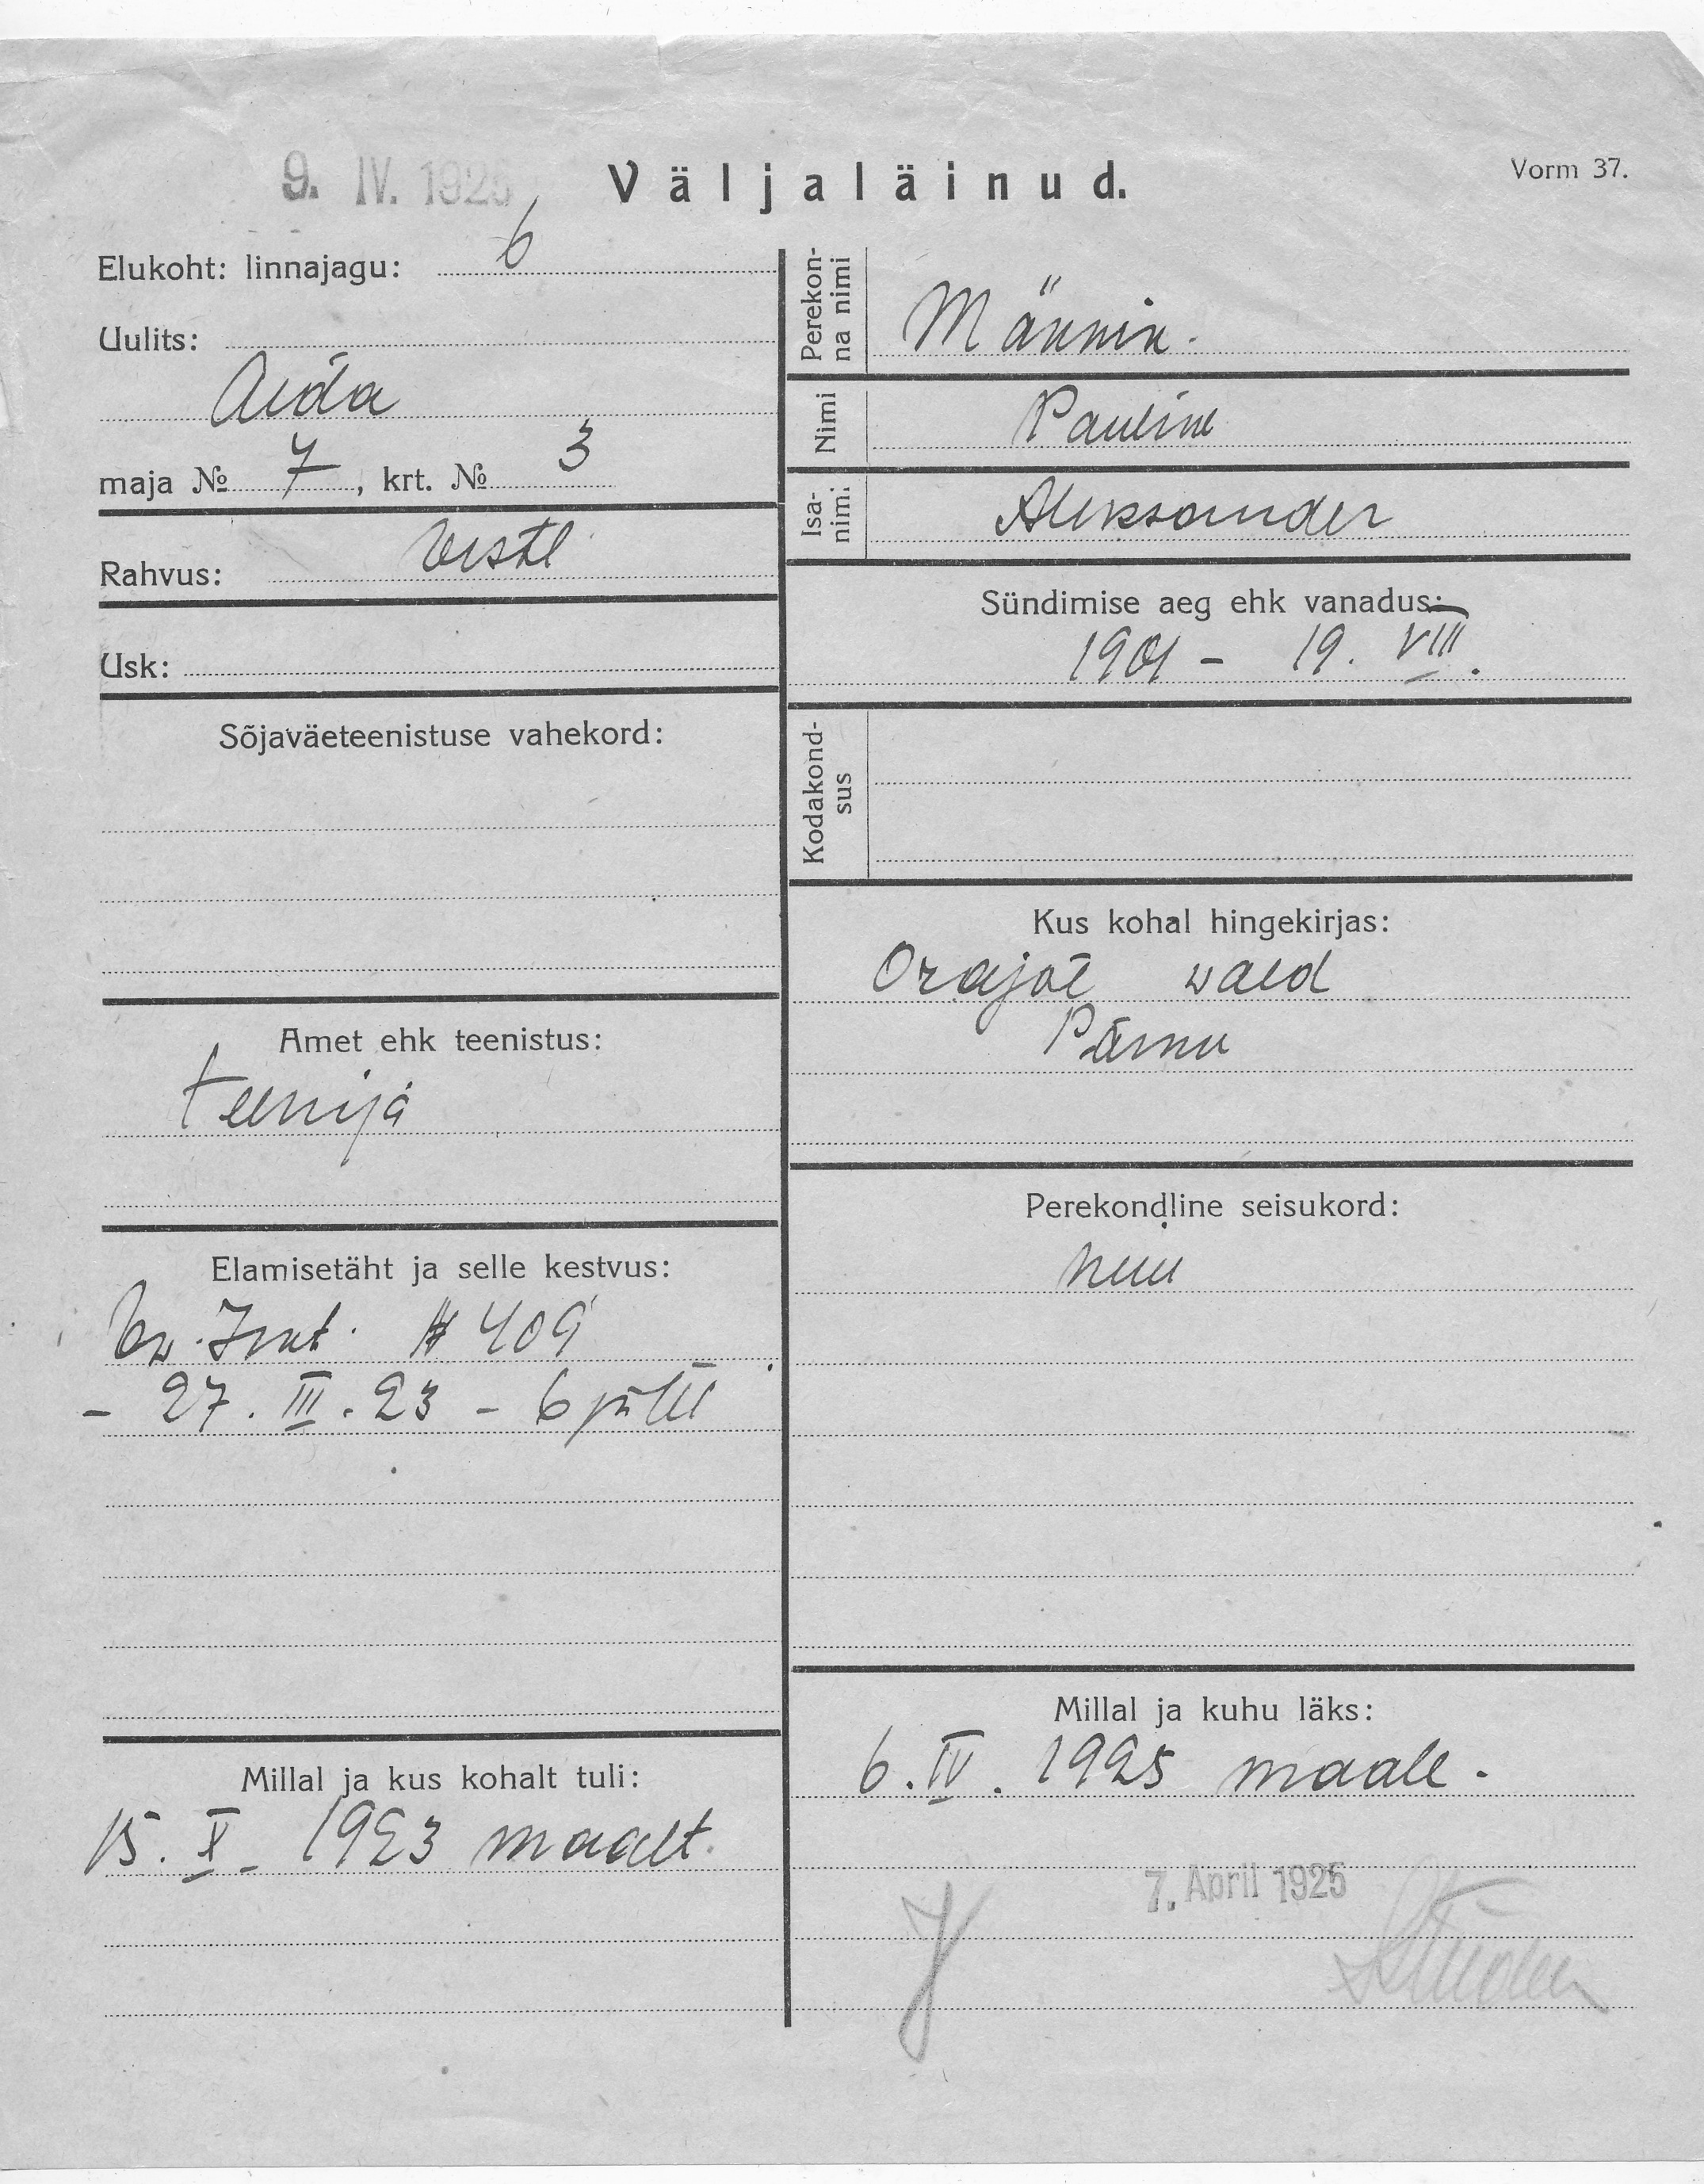 9. IV. 1925
Väljaläinud.
Vorm 37.
Elukoht: linnajagu: 6
Uulits:
Aida
maja № 7, krt. № 3
Rahvus: eestl
Usk:
Sõjaväeteenistuse vahekord:
Amet ehk teenistus:
teenija
Elamisetäht ja selle kestvus:
# 409
- 27. III. 23 -
Millal ja kus kohalt tuli:
15. X - 1923 maalt.
Perekon-
na nimi
Männin.
Nimi
Pauline
Isa-
nimi
Aleksander
Sündimise aeg ehk vanadus:
1901 - 19. VIII.
Kodakond-
sus
Kus kohal hingekirjas:
Orajõe wald
Pärnu
Perekondline seisukord:
neiu
Millal ja kuhu läks:
6. IV. 1925 maale.
7. April 1925